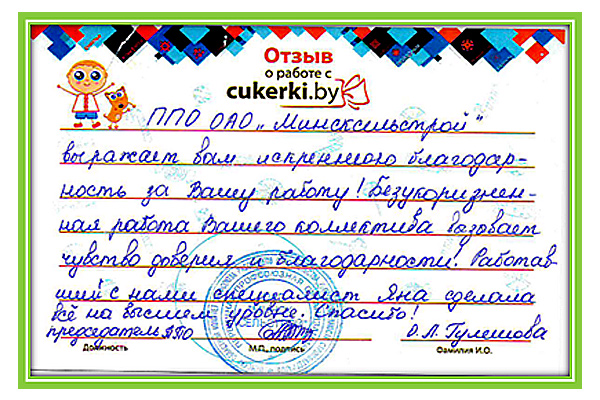 Отзыв
о работе с
cukerki.by
ППО ОАО „Минсксельстрой"
выражает вам искреннюю благодар-
ность за Вашу работу! Безукоризнен-
ная работа Вашего коллектива вызывает
чувство доверия и благодарности! Работав
ший с нами специалист Яна сделала
всё на высшем уровне. Спасибо!
председатель ППО О.Л. Гулешова
Должность М.П., подпись Фамилия И.О.